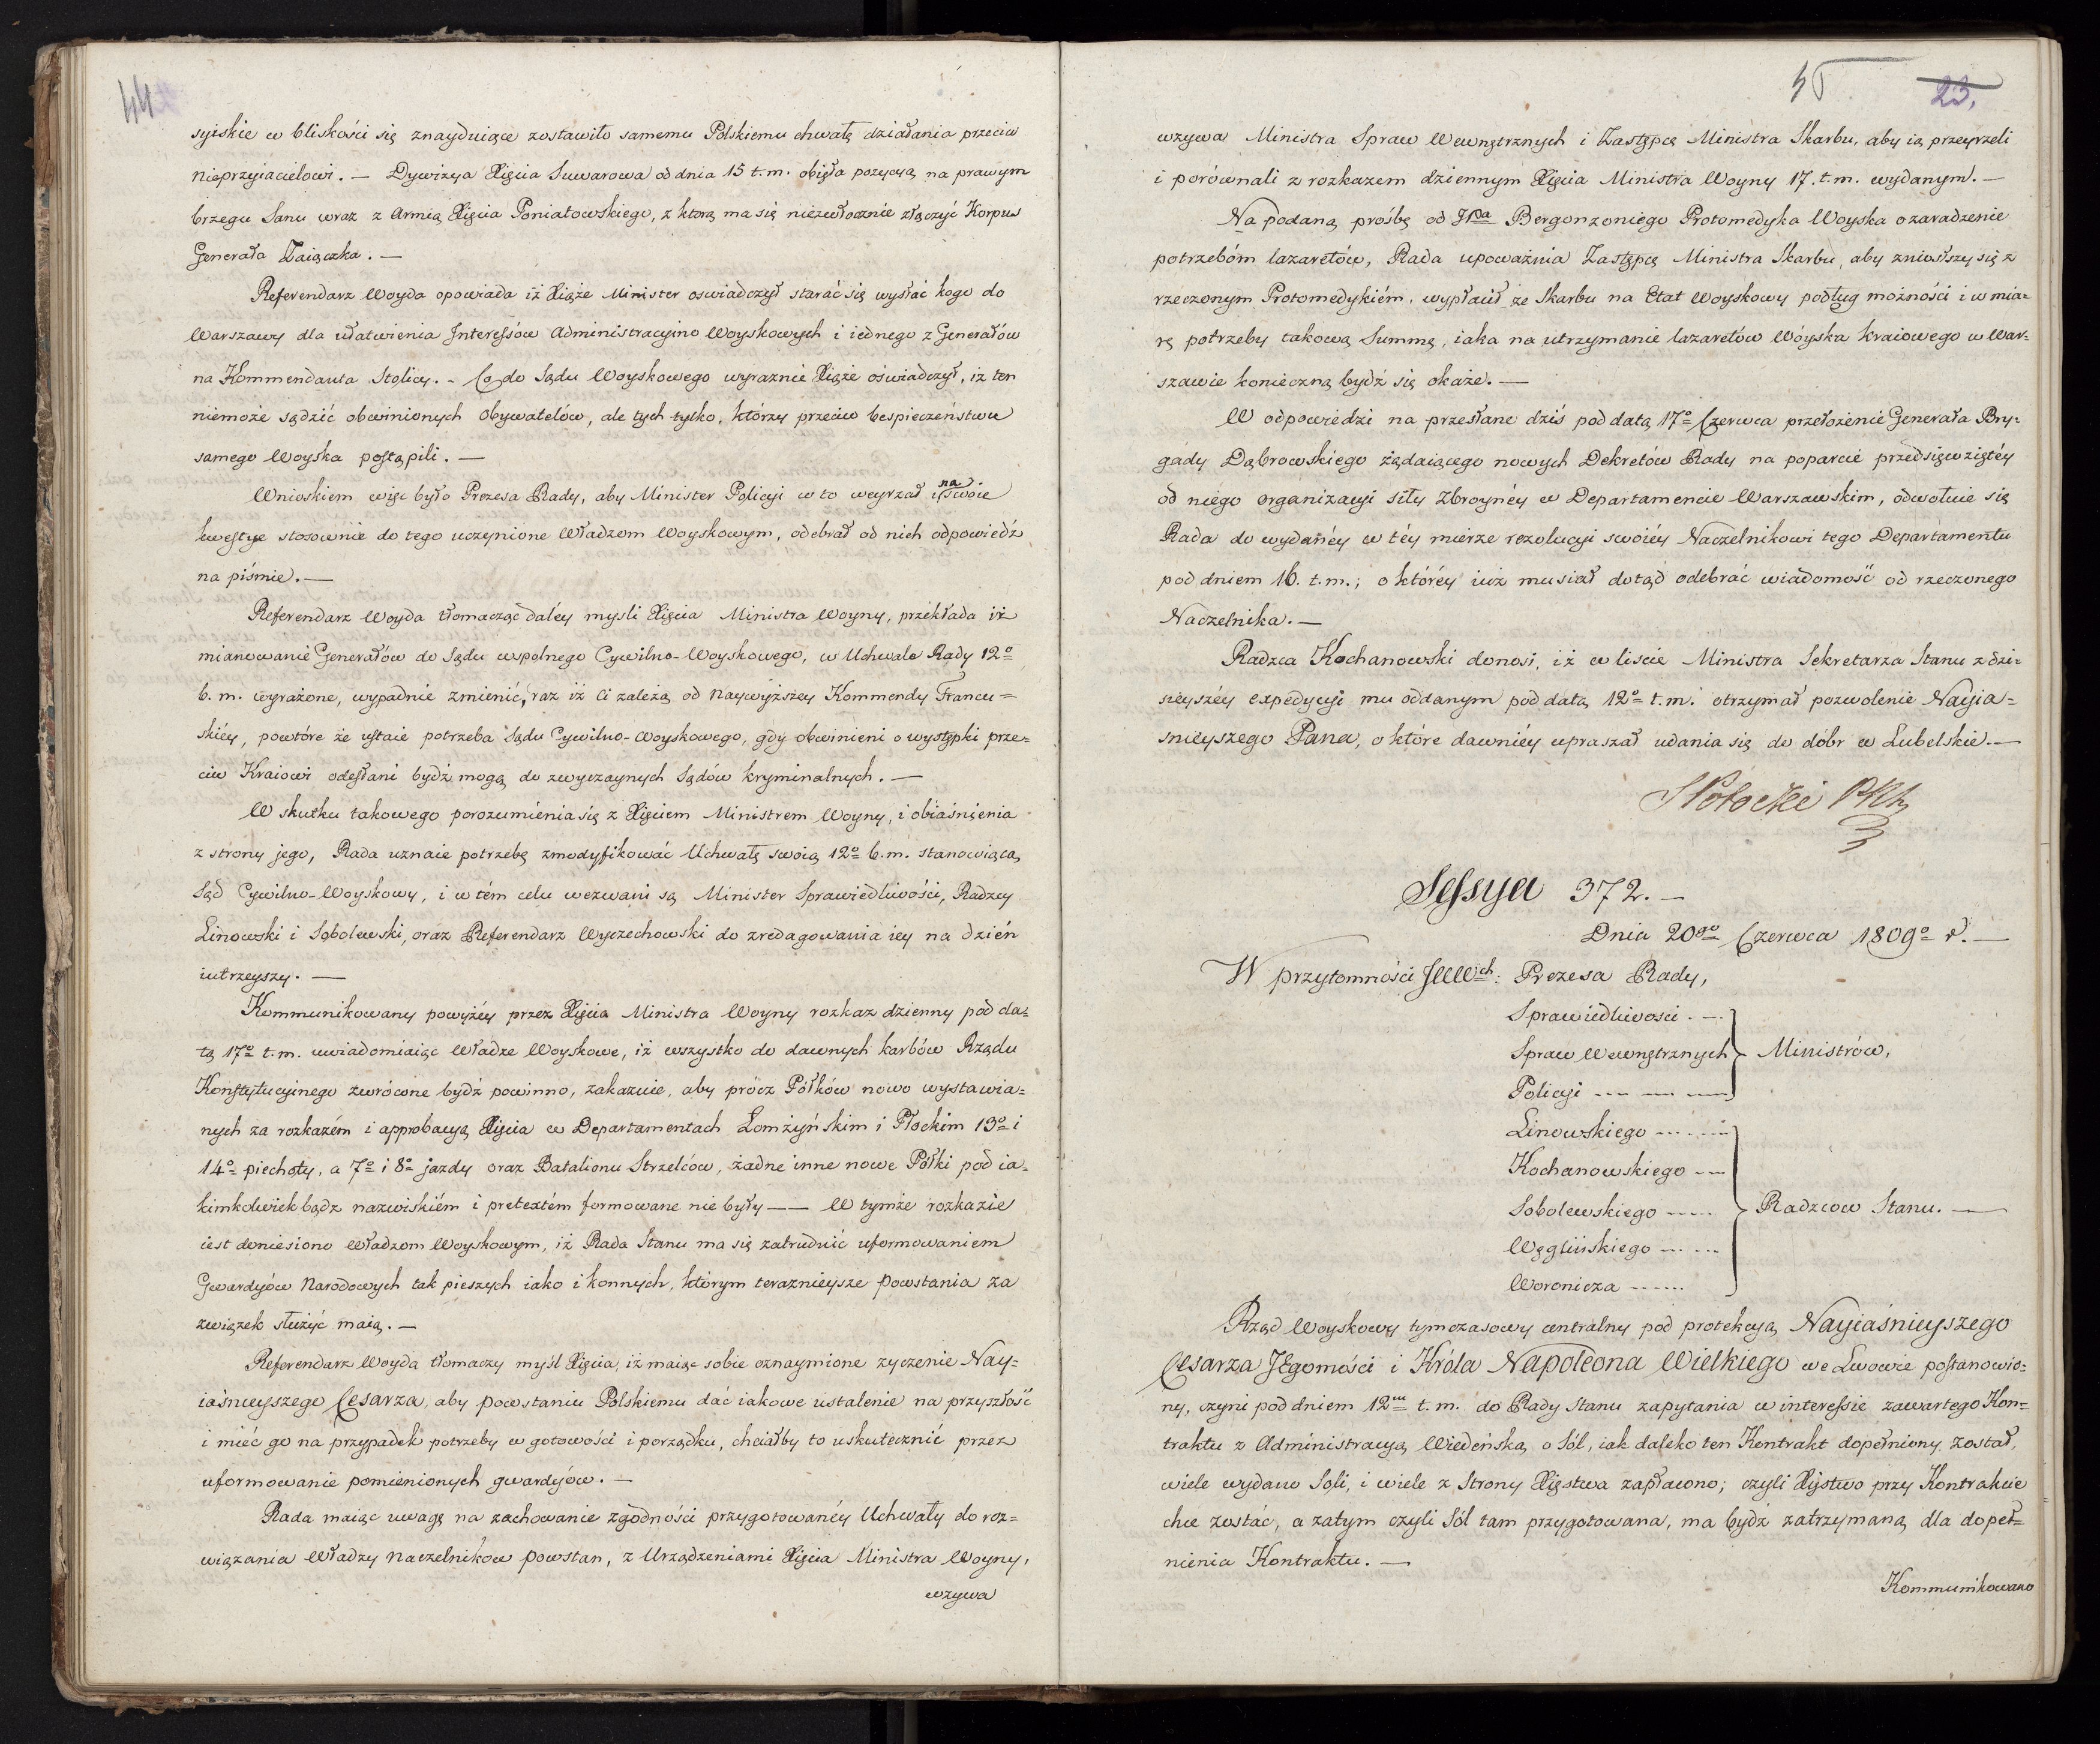 44
syiskie w bliskości się znayduiące zostawiło samemu Polskiemu chwałę działania przeciw
nieprzyiacielowi. — Dywizya Xięcia Suwarowa od dnia 15 t. m. obięła pozycyą na prawym
brzegu Sanu wraz z armią Xięcia Poniatowskiego, z ktorą ma się niezwłocznie złączyć Korpus
Generała Zaiączka. —
Referendarz Woyda opowiada iż Xiąże Minister oswiadczył starać się wysłać kogo do
Warszawy dla ułatwienia Interessów Administracyino Woyskowych i iednego z Generałów
na Kommendanta Stolicy. – Co do Sądu Woyskowego wyraznie Xiąże oświadczył, iż ten
niemoże sądzić obwinionych obywatelów, ale tych tylko, którzy przeciw bespieczeństwu
samego Woyska postąpili. —
Wnioskiem więc było Prezesa Rady, aby Minister Policyi w to weyrzał i na swoie
kwestye stosownie do tego uczynione Władzom Woyskowym, odebrał od nich odpowiedź
na piśmie. —
Referendarz Woyda tłomacząc daléy mysli Xięcia Ministra Woyny, przekłada iż
mianowanie Generałów do Sądu wspolnego Cywilno-Woyskowego, w Uchwale Rady 12º
b. m. wyrażone, wypadnie zmienić, raz iż ci zależą od naywyższey Kommendy Francu=
skiéy, powtóre że ustaie potrzeba Sądu Cywilno-Woyskowego, gdy obwinieni o występki prze=
ciw Kraiowi odesłani bydź mogą do zwyczaynych Sądów kryminalnych. —
W skutku takowego porozumienia się z Xięciem Ministrem Woyny, i obiaśnienia
z strony jego, Rada uznaie potrzebę zmodyfikować Uchwałę swoią 12º b. m. stanowiącą
Sąd Cywilno-Woyskowy, i w tém celu wezwani są Minister Sprawiedliwości, Radzcy
Linowski i Sobolewski, oraz Referendarz Wyczechowski do zredagowania iéy na dzień
iutrzeyszy. —
Kommunikowany powyżéy przez Xięcia Ministra Woyny rozkaz dzienny pod da=
tą 17º t. m. uwiadomiaiąc Władze Woyskowe, iż wszystko do dawnych karbów Rządu
Konstytucyinego zwrócone bydź powinno, zakazuie, aby prócz Półków nowo wystawia=
nych za rozkazém i approbacyą Xięcia w Departamentach Łomżyńskim i Płockim 13º i
14º piechoty, a 7º i 8º jazdy oraz Batalionu Strzelców, żadne inne nowe Półki pod ia=
kimkolwiek bądz nazwiskiém i pretextém formowane nie były —— W tymże rozkazie
iest doniesiono Władzom Woyskowym, iż Rada Stanu ma się zatrudnić uformowaniem
Gwardyów Narodowych tak pieszych iako i konnych, którym teraznieysze powstania za
związek służyć maią. —
Referendarz Woyda tłomaczy myśl Xięcia, iż maiąc sobie oznaymione zyczenie Nay=
iaśnieyszego Cesarza, aby powstaniu Polskiemu dać iakowe ustalenie na przyszłość
i mieć go na przypadek potrzeby w gotowości i porządku, chciałby to uskutecznić przez
uformowanie pomienionych gwardyów. —
Rada maiąc uwagę na zachowanie zgodności przygotowanéy Uchwały do roz=
wiązania Władzy Naczelnikow powstan, z Urządzeniami Xięcia Ministra Woyny,
wzywa
45
23.
wzywa Ministra Spraw Wewnętrznych i Zastępcę Ministra Skarbu, aby ią przeyrzeli
i porównali z rozkazem dziennym Xięcia Ministra Woyny 17. t. m. wydanym. —
Na podaną prośbę od JPa Bergonzoniego Protomedyka Woyska o zaradzenie
potrzebóm lazaretów, Rada upoważnia Zastępcę Ministra Skarbu, aby zniosłszy się z
rzeczonym Protomedykiém, wypłacił ze Skarbu na Etat Woyskowy podług możności i w mia=
rę potrzeby takową Summę, iaka na utrzymanie lazaretów Wóyska kraiowego w War=
szawie konieczną bydź się okaże. —
W odpowiedzi na przesłane dziś pod datą 17º Czerwca przełożenie Generała Bry=
gady Dąbrowskiego żądaiącego nowych Dekretów Rady na poparcie przedsięwziętéy
od niego organizacyi siły zbroynéy w Departamencie Warszawskim, odwołuie się
Rada do wydanéy w téy mierze rezolucyi swoiéy Naczelnikowi tego Departamentu
pod dniem 16. t. m.; o któréy iuż musiał dotąd odebrać wiadomość od rzeczonego
Naczelnika. —
Radzca Kochanowski donosi, iż w liscie Ministra Sekretarza Stanu z dzi=
sieyszéy expedycyi mu oddanym pod datą 12º t. m. otrzymał pozwolenie Nayia=
snieyszego Pana, o które dawniéy upraszał udania się do dóbr w Lubelskie. —
S Potocki
Sessya 372. —
Dnia 20go Czerwca 1809º r. —
W przytomności JWWch: Prezesa Rady,
Sprawiedliwosci . —
Spraw Wewnętrznych } Ministrów,
Policyi
Linowskiego
Kochanowskiego
Sobolewskiego } Radzcow Stanu. —
Węglińskiego
Woronicza
Rząd Woyskowy tymczasowy centralny pod protekcyą Nayiaśnieyszego
Cesarza JEgomości i Króla Napoleona Wielkiego we Lwowie postanowio=
ny, czyni pod dniem 12m t. m. do Rady Stanu zapytania w interessie zawartego Kon=
traktu z Administracyą Wiedeńską o Sól, iak daleko ten Kontrakt dopełniony został,
wiele wydano Soli, i wiele z Strony Xięstwa zapłacono; czyli Xięstwo przy Kontrakcie
chce zostać, a zatym czyli Sól tam przygotowana, ma bydź zatrzymaną dla dopeł=
nienia Kontraktu. —
Kommunikowano